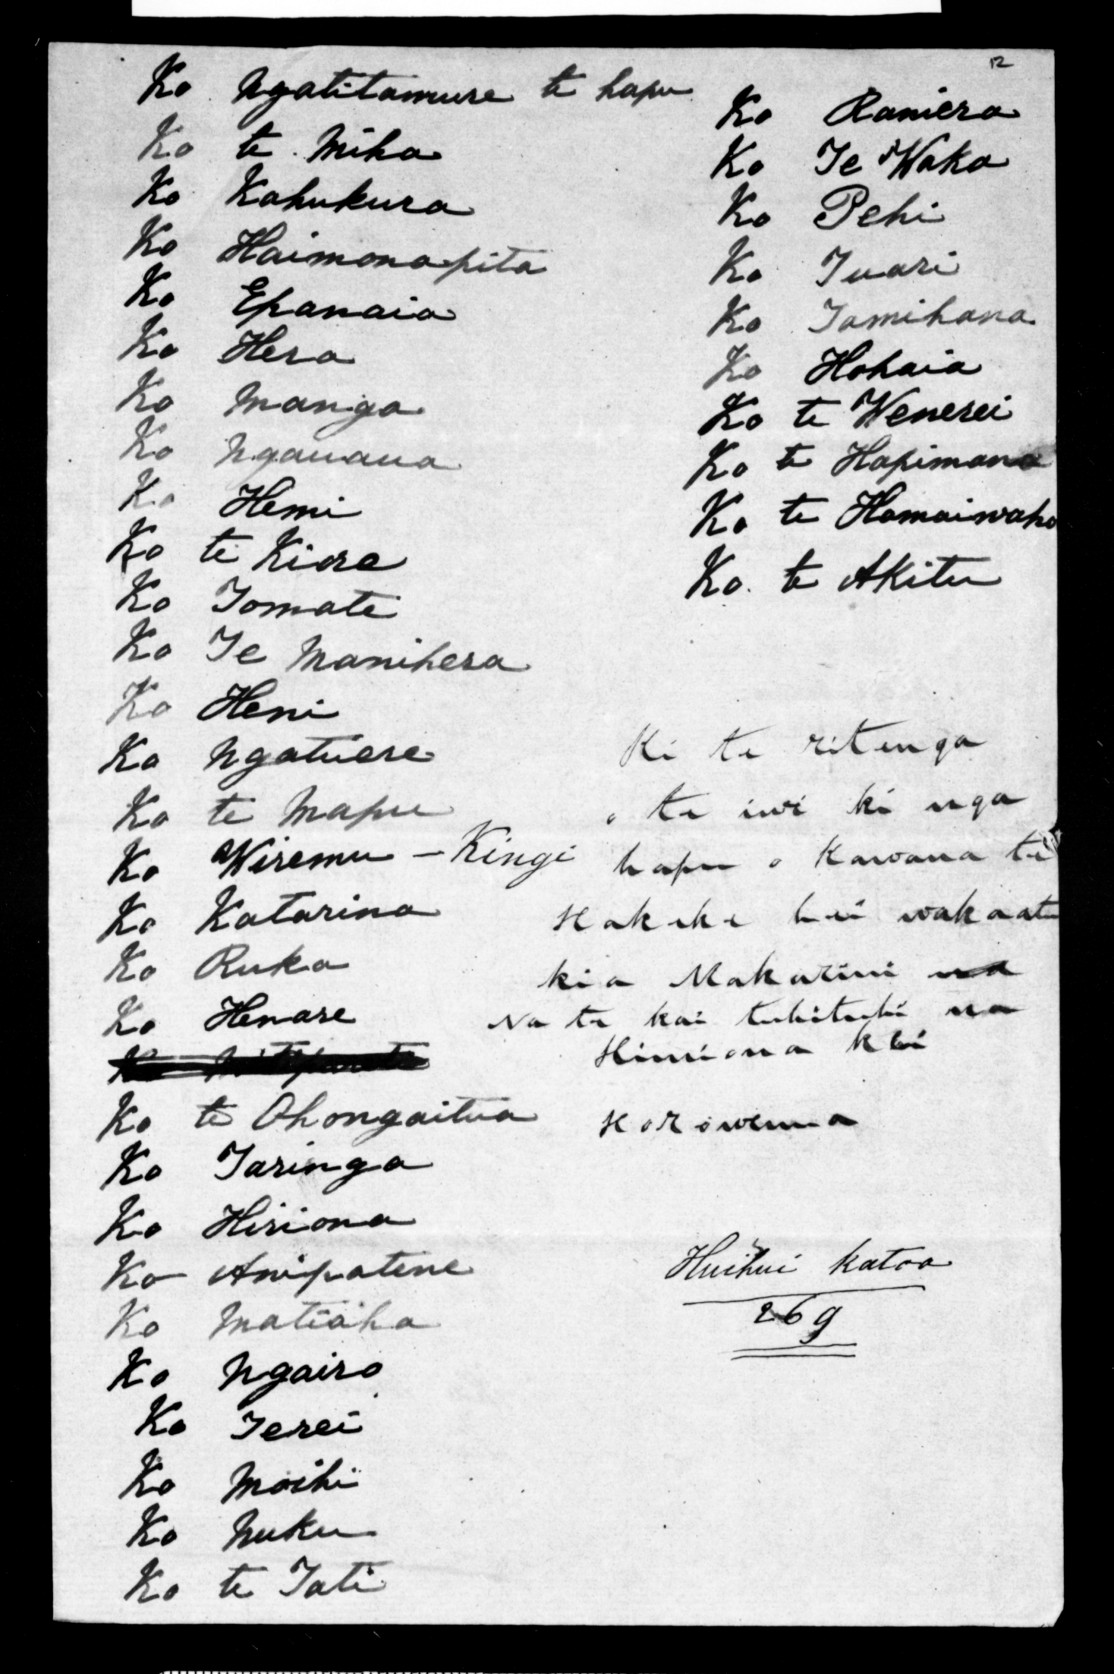 12
Ko Ngatitamure te hapu
Ko te Miha
Ko Kahukura
Ko Haimonapita
Ko Epanaia
Ko Hera
Ko Manga
Ko Ngauaua
Ko Hemi
Ko te Kiore
Ko Tomati
Ko Te Manihera
Ko Heni
Ko Ngatuere
Ko te Mapu
Ko Wiremu - Kingi
Ko Katarina
Ko Ruka
Ko Henare
Ko te Ohongaitua
Ko Taringa
Ko Hiriona
Ko Anipatene
Ko Matiaha
Ko Ngairo
Ko Terei
Ko Moihi
Ko Nuku
Ko te Tati
Ko Raniera
Ko Te Waka
Ko Pehi
Ko Tuari
Ko Tamihana
Ko Hohaia
Ko te Wenerei
Ko te Hapimana
Ko te Hamaiwaho
Ko te Akitu
Ki te ritenga
o te iwi ki nga
hapu o Kawana te
Hakeke hei wakaatu
kia Makarini
Na te kai tuhituhi na
Himiona kei
Horowenua
Huihui katoa
269